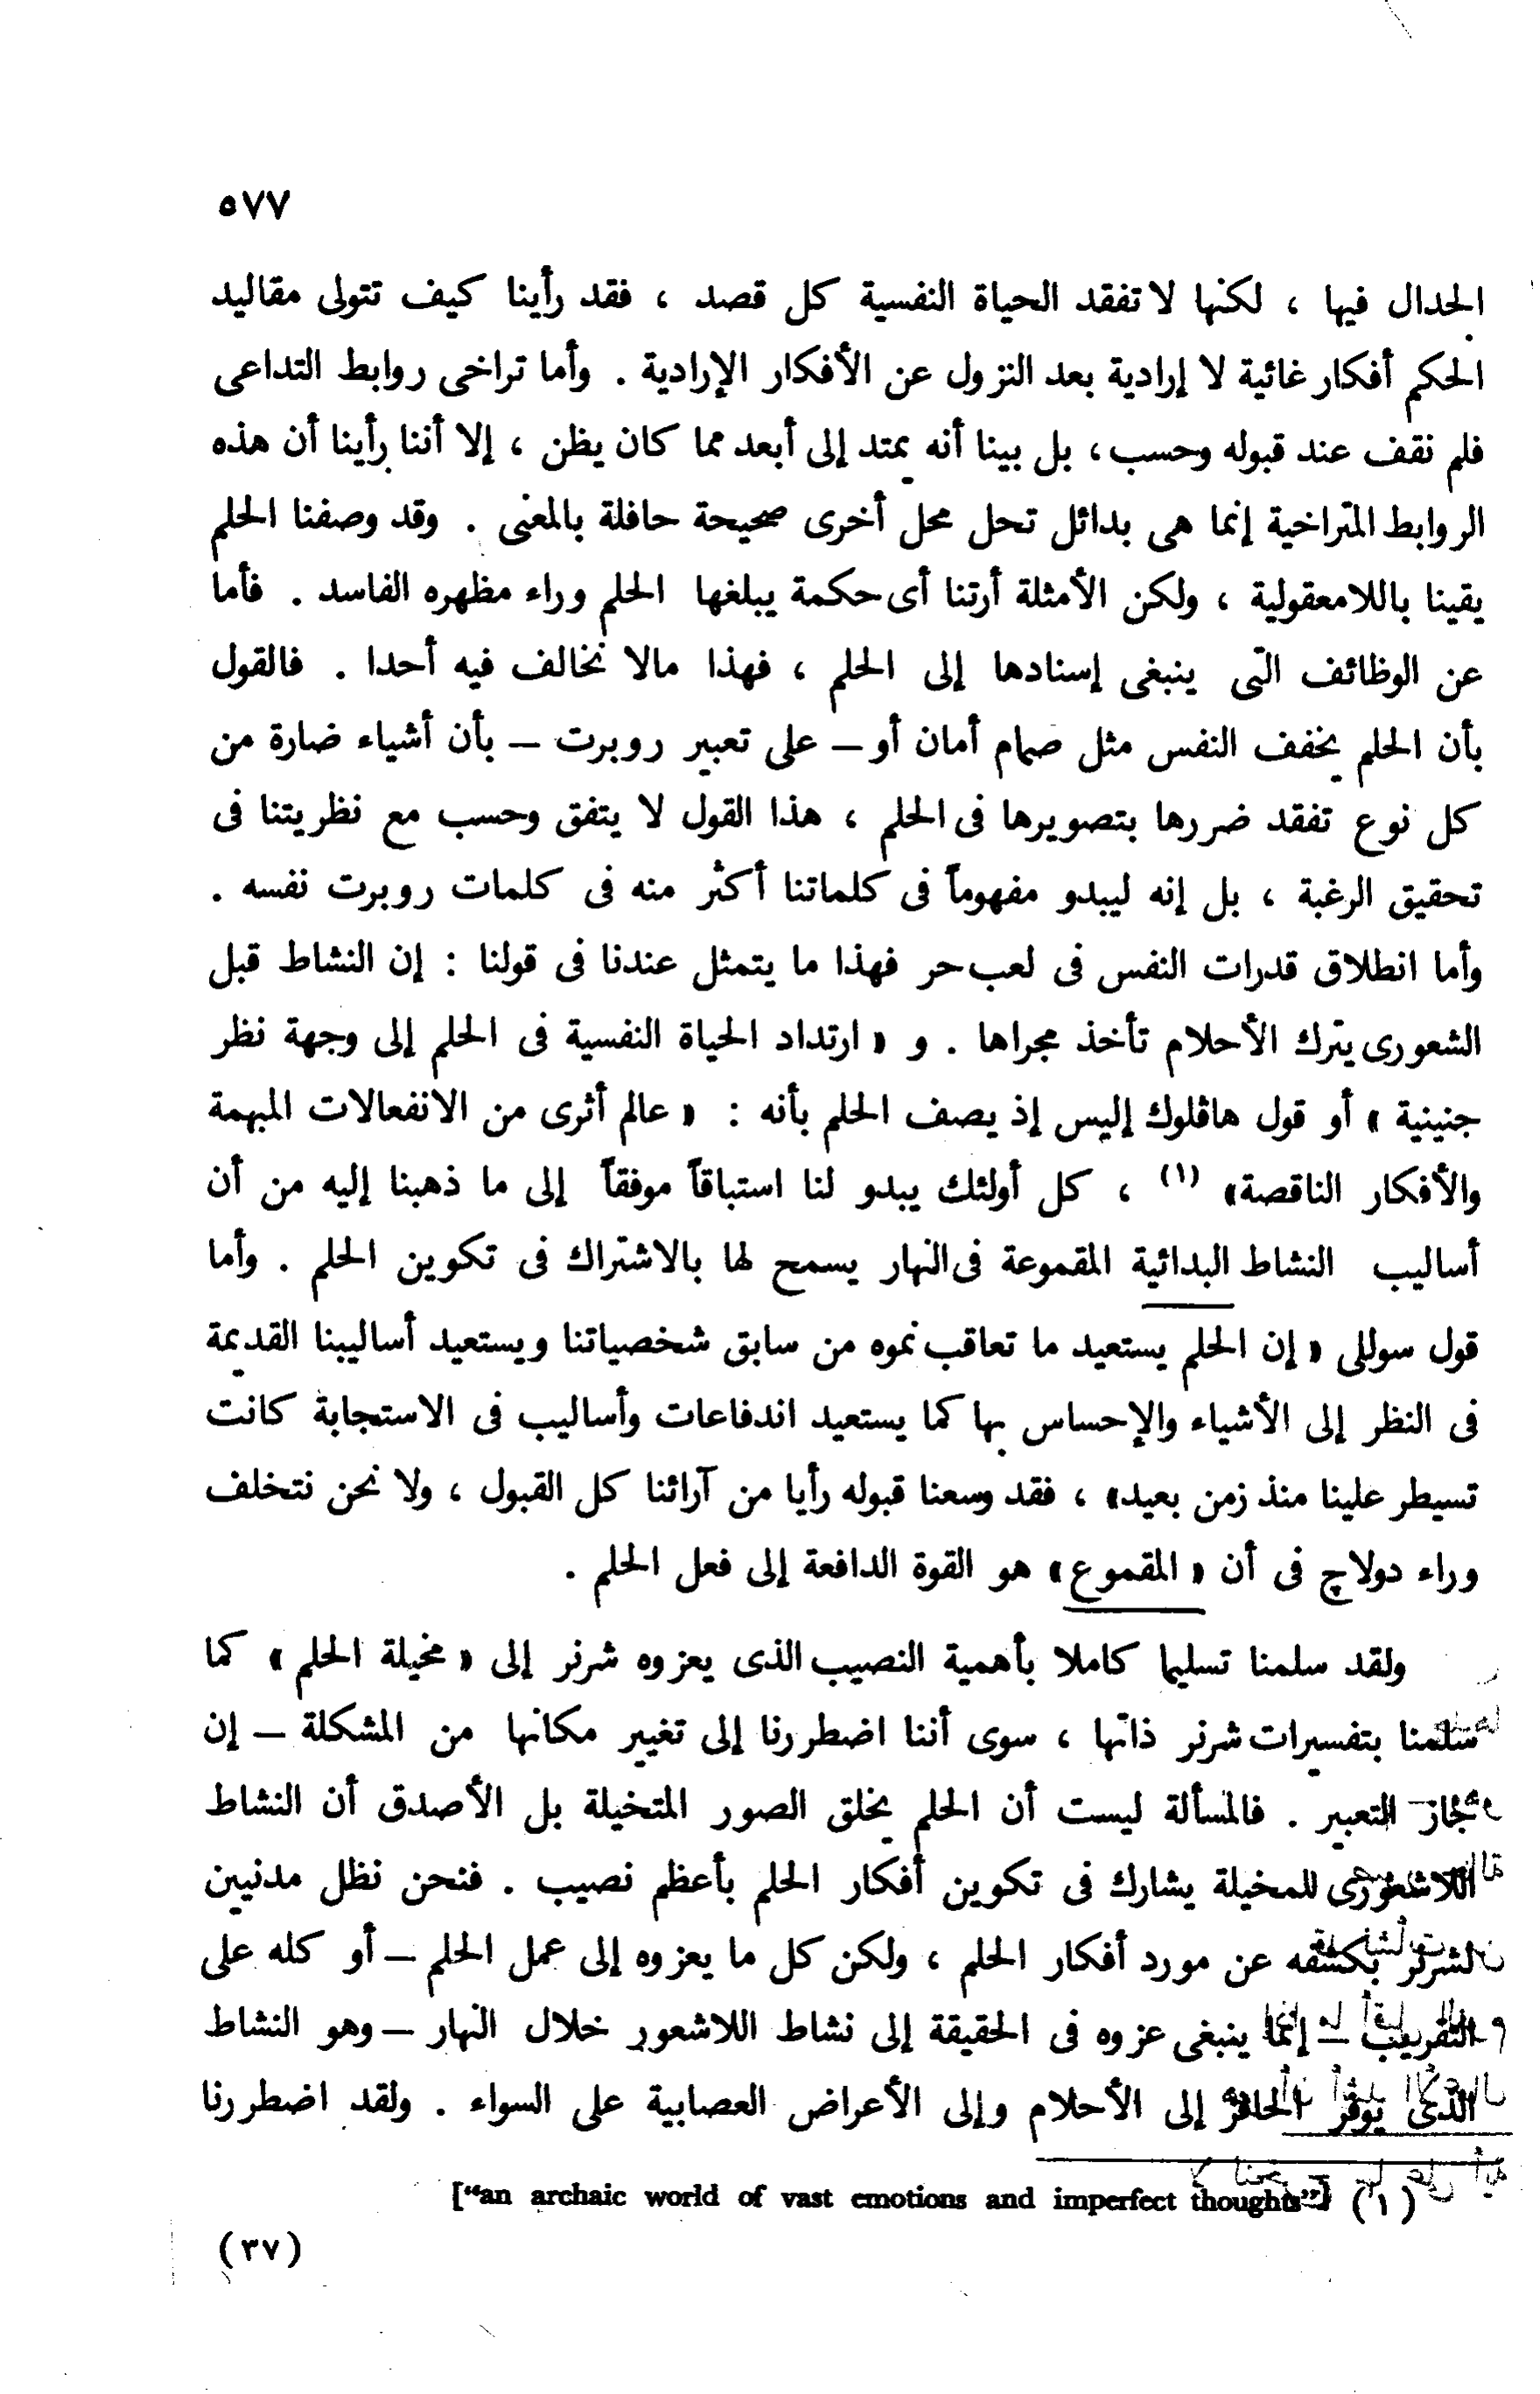 ٥٧٧
الجدال فيها ، لكنها لا تفقد الحياة النفسية كل قصد ، فقد رأينا كيف تتولى مقاليد
الحكم أفكار غائية لا إرادية بعد النزول عن الأفكار الإرادية . وأما تراخى روابط التداعى
فلم نقف عند قبوله وحسب ، بل بينا أنه يمتد إلى أبعد مما كان يظن ، إلا أننا رأينا أن هذه
الروابط المتراخية إنما هى بدائل تحل محل أخرى صحيحة حافلة بالمعنى . وقد وصفنا الحلم
يقينا باللامعقولية ، ولكن الأمثلة أرتنا أى حكمة يبلغها الحلم وراء مظهره الفاسد . فأما
عن الوظائف التى ينبغى إسنادها إلى الحلم ، فهذا مالا نخالف فيه أحدا . فالقول
بأن الحلم يخفف النفس مثل صمام أمان أو – على تعبير روبرت – بأن أشياء ضارة من
كل نوع تفقد ضررها بتصويرها فى الحلم ، هذا القول لا يتفق وحسب مع نظريتنا فى
تحقيق الرغبة ، بل إنه ليبدو مفهوماً فى كلماتنا أكثر منه فى كلمات روبرت نفسه .
وأما انطلاق قدرات النفس فى لعب حر فهذا ما يتمثل عندنا فى قولنا : إن النشاط قبل
الشعورى يترك الأحلام تأخذ مجراها . و « ارتداد الحياة النفسية فى الحلم إلى وجهة نظر
جنينية » أو قول هاڤلوك إليس إذ يصف الحلم بأنه : « عالم أثرى من الانفعالات المبهمة
والأفكار الناقصة» (١) ، كل أولئك يبدو لنا استباقاً موفقاً إلى ما ذهبنا إليه من أن
أساليب النشاط البدائية المقموعة فى النهار يسمح لها بالاشتراك فى تكوين الحلم . وأما
قول سوللى « إن الحلم يستعيد ما تعاقب نموه من سابق شخصياتنا ويستعيد أساليبنا القديمة
فى النظر إلى الأشياء والإحساس بها كما يستعيد اندفاعات وأساليب فى الاستجابة كانت
تسيطر علينا منذ زمن بعيد» ، فقد وسعنا قبوله رأيا من آرائنا كل القبول ، ولا نحن نتخلف
وراء دولاج فى أن « المقموع » هو القوة الدافعة إلى فعل الحلم .
ولقد سلمنا تسليما كاملا بأهمية النصيب الذى يعزوه شرنر إلى « مخيلة الحلم » كما
سلمنا بتفسيرات شرنر ذاتها ، سوى أننا اضطررنا إلى تغيير مكانها من المشكلة – إن
جاز التعبير . فالمسألة ليست أن الحلم يخلق الصور المتخيلة بل الأصدق أن النشاط
اللاشعورى للمخيلة يشارك فى تكوين أفكار الحلم بأعظم نصيب . فنحن نظل مدنيين
لشرنر بكشفه عن مورد أفكار الحلم ، ولكن كل ما يعزوه إلى عمل الحلم – أو كله على
التقريب – إنما ينبغى عزوه فى الحقيقة إلى نشاط اللاشعور خلال النهار – وهو النشاط
الذى يوفر الحافز إلى الأحلام وإلى الأعراض العصابية على السواء . ولقد اضطررنا
(١) ["an archaic world of vast emotions and imperfect thoughts"]
(٣٧)